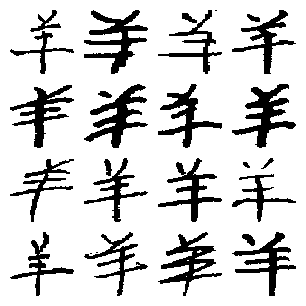 羊羊羊羊
羊羊羊羊
羊羊羊羊
羊羊羊羊